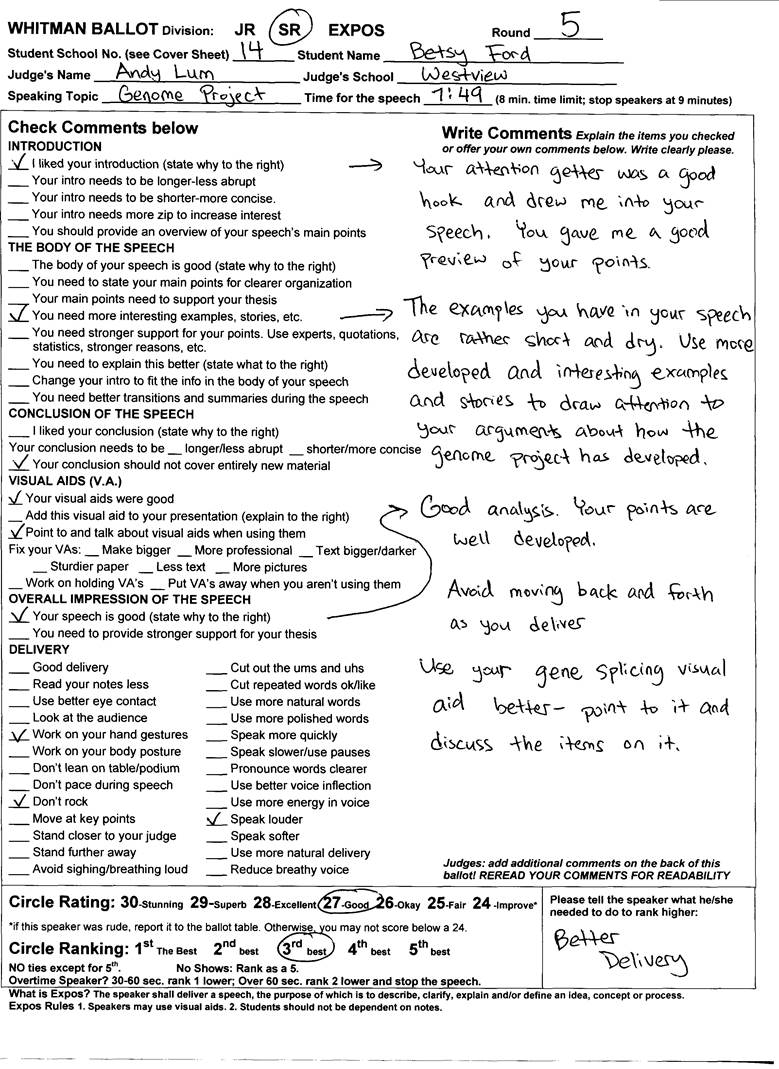 WHITMAN BALLOT Division: JR SR EXPOS Round 5
Student School No. (see Cover Sheet) 14 Student Name Betsy Ford
Judge's Name Andy Lum Judge's School Westview
Speaking Topic Genome Project Time for the speech 7:49 (8 min. time limit; stop speakers at 9 minutes)
Check Comments below
INTRODUCTION
✓ I liked your introduction (state why to the right) →
___ Your intro needs to be longer-less abrupt
___ Your intro needs to be shorter-more concise.
___ Your intro needs more zip to increase interest
___ You should provide an overview of your speech's main points
THE BODY OF THE SPEECH
___ The body of your speech is good (state why to the right)
___ You need to state your main points for clearer organization
___ Your main points need to support your thesis
✓ You need more interesting examples, stories, etc. →
___ You need stronger support for your points. Use experts, quotations,
statistics, stronger reasons, etc.
___ You need to explain this better (state what to the right)
___ Change your intro to fit the info in the body of your speech
___ You need better transitions and summaries during the speech
CONCLUSION OF THE SPEECH
___ I liked your conclusion (state why to the right)
Your conclusion needs to be __ longer/less abrupt __ shorter/more concise
✓ Your conclusion should not cover entirely new material
VISUAL AIDS (V.A.)
✓ Your visual aids were good
___ Add this visual aid to your presentation (explain to the right)
✓ Point to and talk about visual aids when using them
Fix your VAs: __ Make bigger __ More professional __ Text bigger/darker
__ Sturdier paper __ Less text __ More pictures
__ Work on holding VA's __ Put VA's away when you aren't using them
OVERALL IMPRESSION OF THE SPEECH
✓ Your speech is good (state why to the right)
___ You need to provide stronger support for your thesis
DELIVERY
___ Good delivery ___ Cut out the ums and uhs
___ Read your notes less ___ Cut repeated words ok/like
___ Use better eye contact ___ Use more natural words
___ Look at the audience ___ Use more polished words
✓ Work on your hand gestures ___ Speak more quickly
___ Work on your body posture ___ Speak slower/use pauses
___ Don't lean on table/podium ___ Pronounce words clearer
___ Don't pace during speech ___ Use better voice inflection
✓ Don't rock ___ Use more energy in voice
___ Move at key points ✓ Speak louder
___ Stand closer to your judge ___ Speak softer
___ Stand further away ___ Use more natural delivery
___ Avoid sighing/breathing loud ___ Reduce breathy voice
Write Comments Explain the items you checked
or offer your own comments below. Write clearly please.
Your attention getter was a good
hook and drew me into your
speech. You gave me a good
Preview of your points.
The examples you have in your speech
are rather short and dry. Use more
developed and interesting examples
and stories to draw attention to
your arguments about how the
genome project has developed.
Good analysis. Your points are
well developed.
Avoid moving back and forth
as you deliver
Use your gene splicing visual
aid better- point to it and
discuss the items on it.
Judges: add additional comments on the back of this
ballot! REREAD YOUR COMMENTS FOR READABILITY
Circle Rating: 30-Stunning 29-Superb 28-Excellent 27-Good 26-Okay 25-Fair 24-Improve*
*if this speaker was rude, report it to the ballot table. Otherwise, you may not score below a 24.
Circle Ranking: 1st The Best 2nd best 3rd best 4th best 5th best
NO ties except for 5th. No Shows: Rank as a 5.
Overtime Speaker? 30-60 sec. rank 1 lower; Over 60 sec. rank 2 lower and stop the speech.
Please tell the speaker what he/she
needed to do to rank higher:
Better
Delivery
What is Expos? The speaker shall deliver a speech, the purpose of which is to describe, clarify, explain and/or define an idea, concept or process.
Expos Rules 1. Speakers may use visual aids. 2. Students should not be dependent on notes.